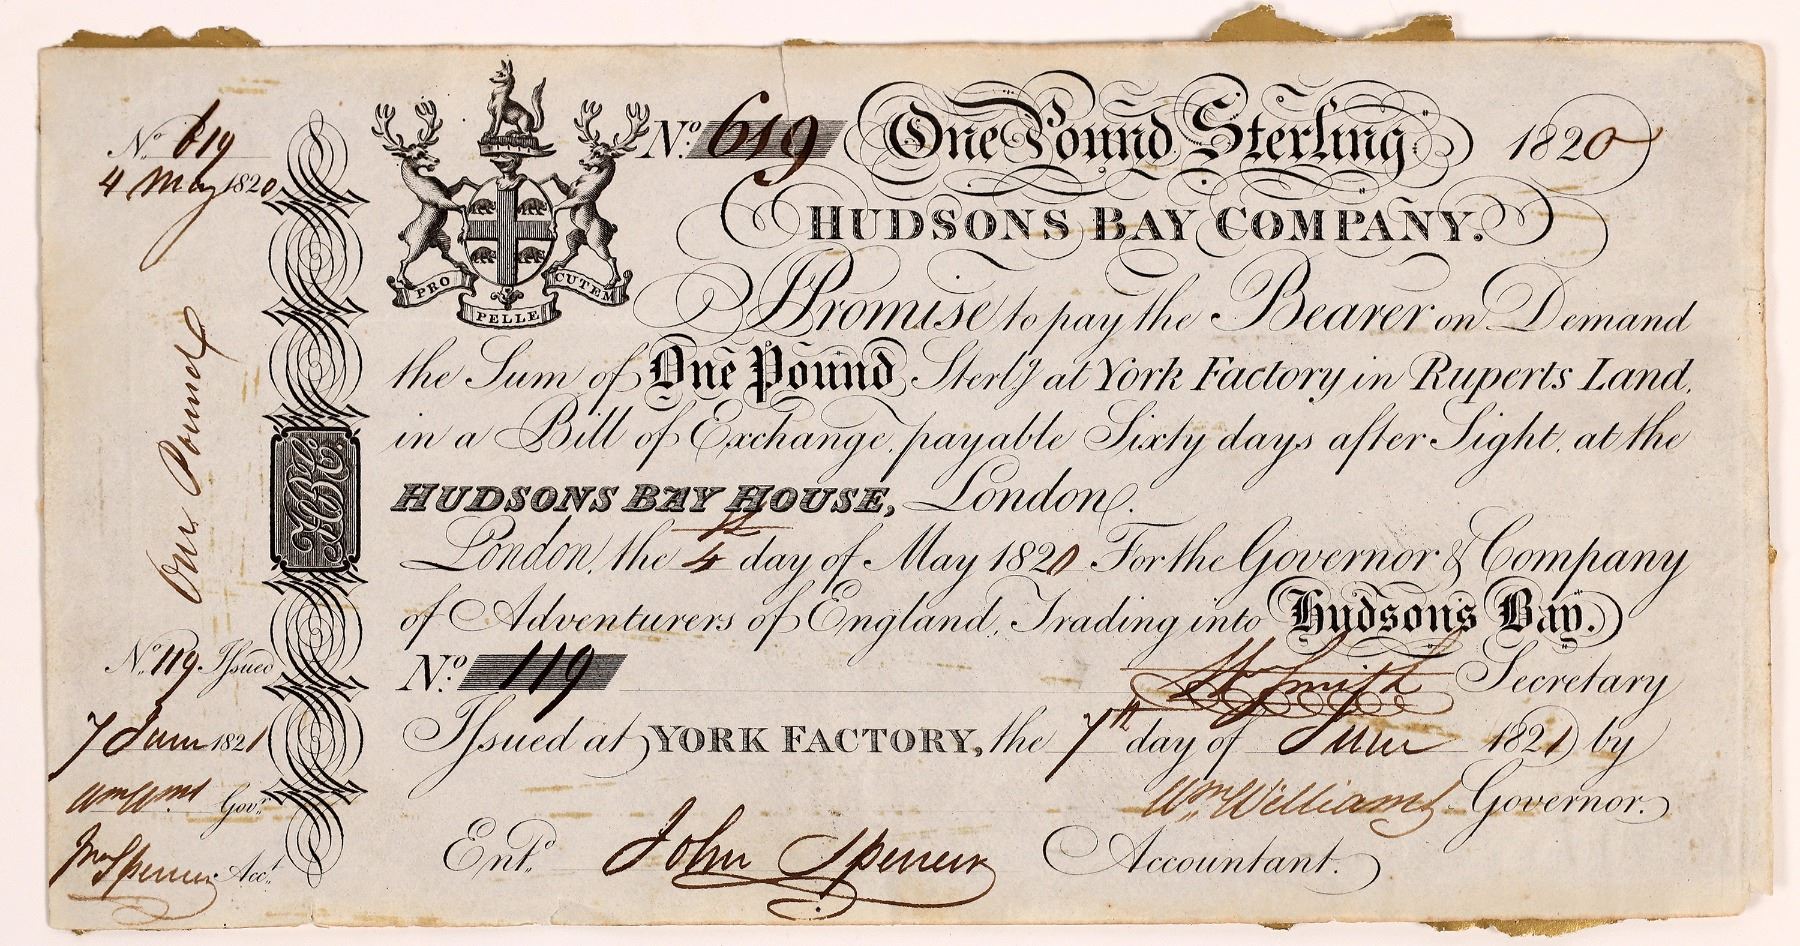 No. 619
4 May 1820
One Pound
No. 119 Issued
7 June 1821
Wm Wms Govr.
Jno Spencer Acct.
PRO PELLE CUTEM
No. 619 One Pound Sterling 1820
HUDSONS BAY COMPANY.
I Promise to pay the Bearer on Demand
the Sum of One Pound Sterlg. at York Factory in Ruperts Land,
in a Bill of Exchange, payable Sixty days after Sight, at the
HUDSONS BAY HOUSE, London.
HBC
London, the 4th day of May 1820 For the Governor & Company
of Adventurers of England, Trading into Hudson's Bay.
No. 119 Wm Smith Secretary
Issued at YORK FACTORY, the 7th day of June 1821 by
Wm. Williams Governor.
Entd. John Spencer Accountant.